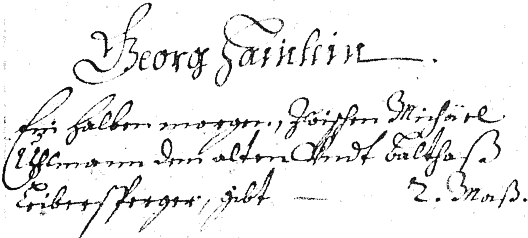 Georg Hainlein.
halben morgen, Zwischen Michäel
Uhlmann dem alten Vndt Balthaß
Leibersperger, gibt — 2. Maß.